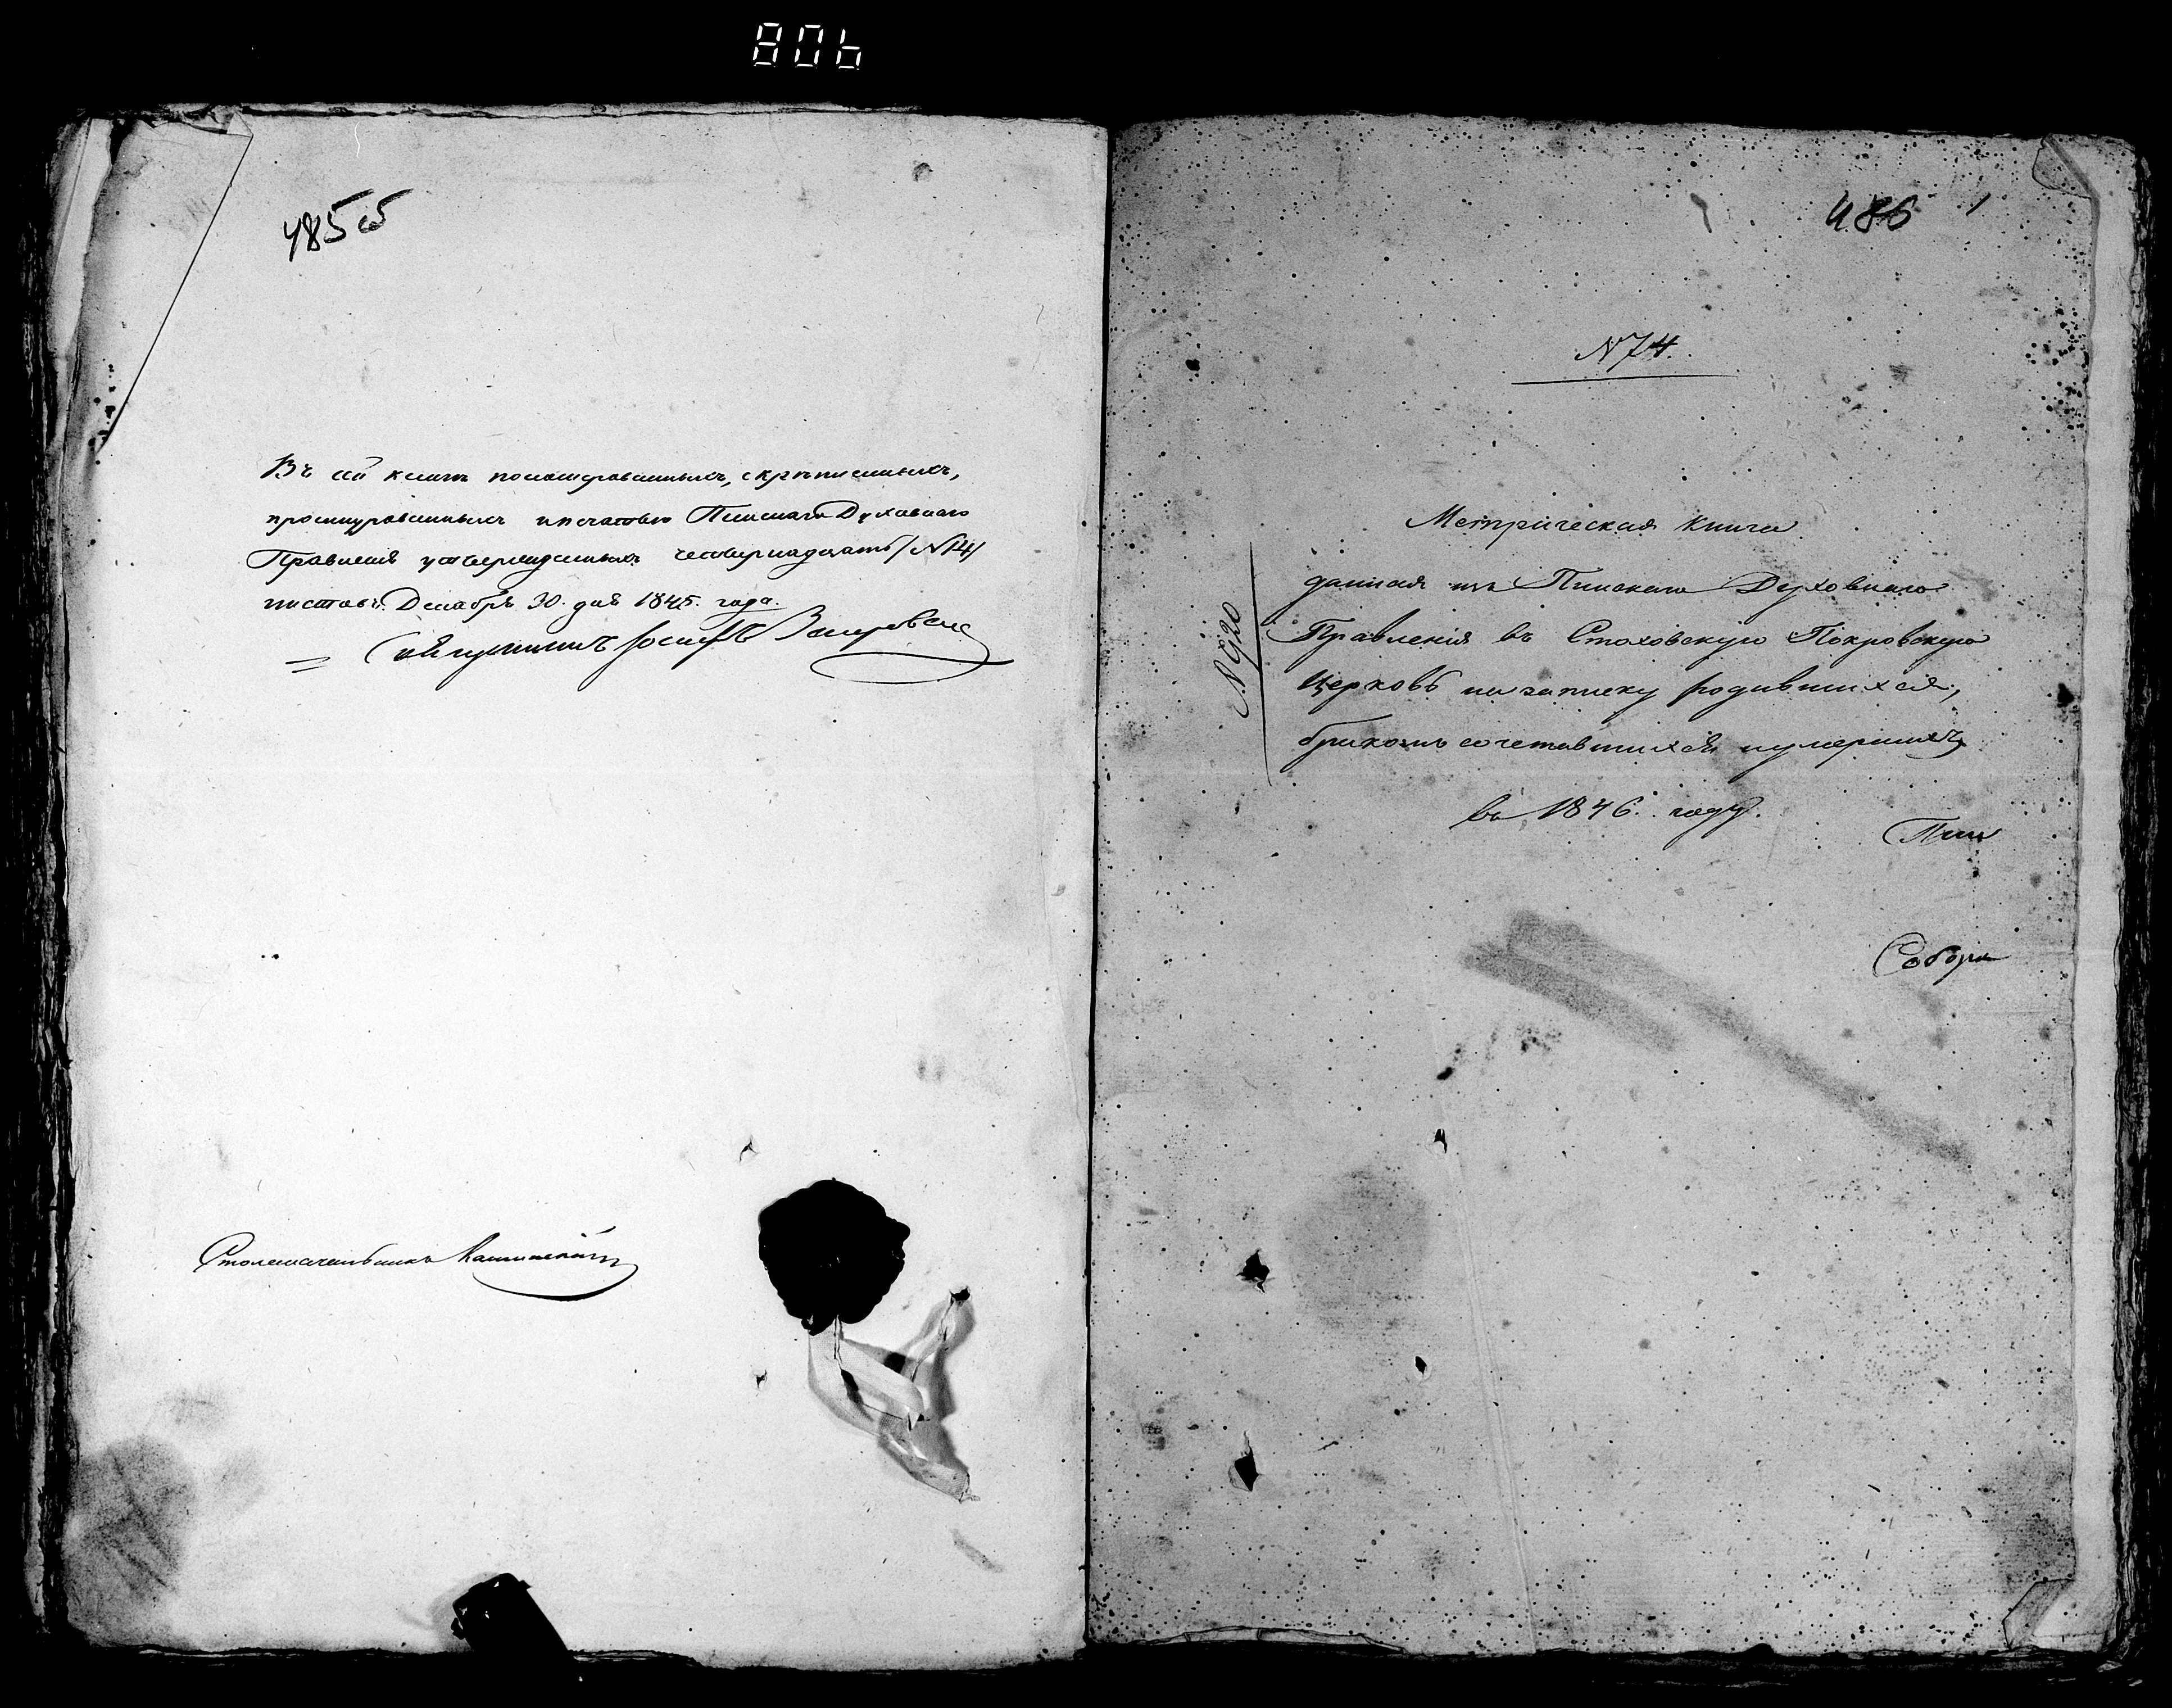 806
485 об
Въ сей книгѣ нонумерованныхъ, скрѣпленныхъ,
прошнурованныхъ и печатью Пинскаго Духовнаго
Правленія утвержденныхъ четырнадцать /N14/
листовъ. Декабря 30. дня 1845. года.
Іосифъ
Столоначальникъ
486 1
N74.
Метрическая книга
данная изъ Пинскаго Духовнаго
Правленія въ Стоховскую Покровскую
Церковь на записку родившихся,
бракомъ сочетавшихся и умершихъ
въ 1846. году.
N 920
Пин
Собора